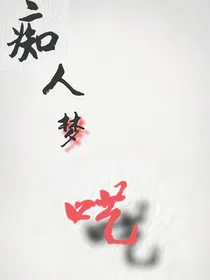 痴人梦呓